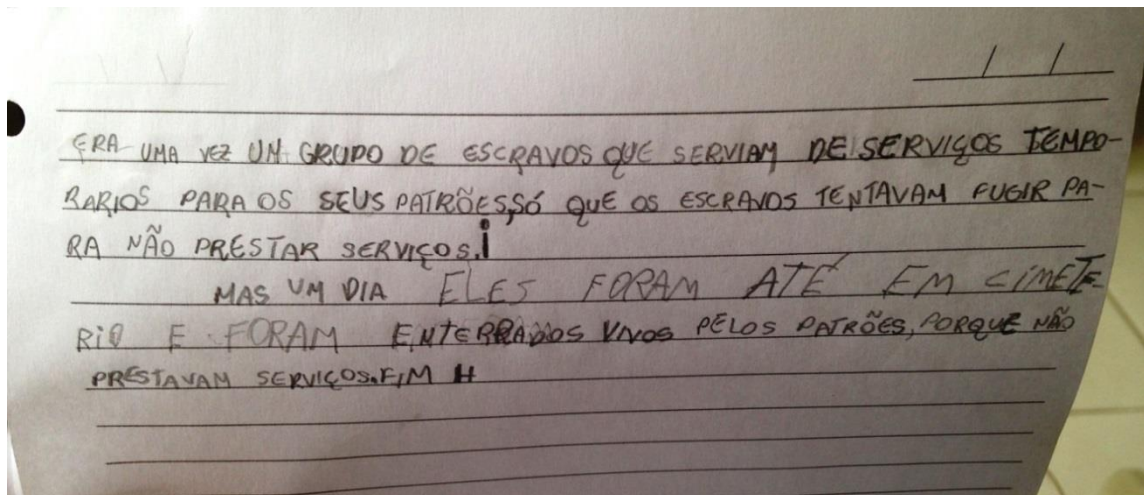 / /
ERA UMA VEZ UM GRUPO DE ESCRAVOS QUE SERVIAM DE SERVIÇOS TEMPO-
RARIOS PARA OS SEUS PATRÕES, SÓ QUE OS ESCRAVOS TENTAVAM FUGIR PA-
RA NÃO PRESTAR SERVIÇOS.
MAS UM DIA ELES FORAM ATÉ EM CIMETE-
RIO E FORAM ENTERRADOS VIVOS PELOS PATRÕES, PORQUE NÃO
PRESTAVAM SERVIÇOS. FIM